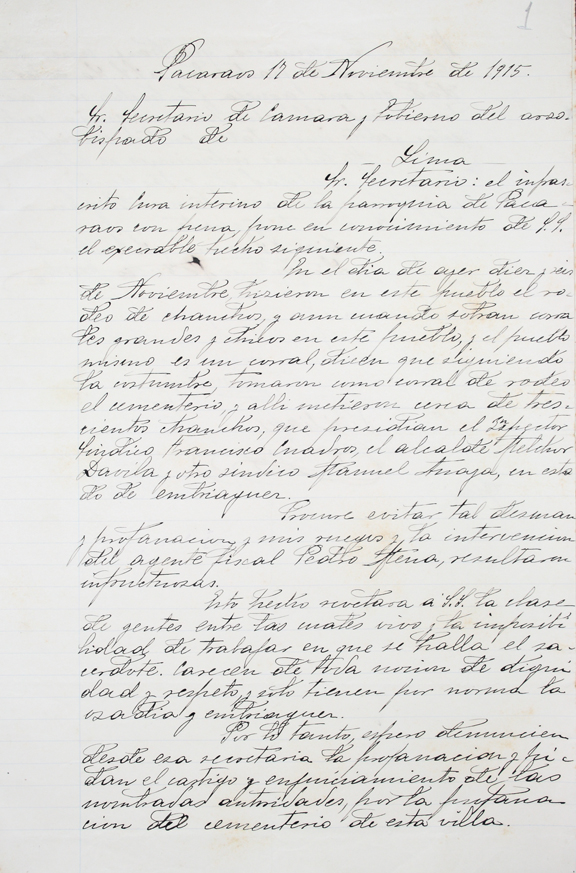 1
Pacaraos 17 de Noviembre de 1915.
Sr. Secretario de Camara y Gobierno del arzo-
bispado de
Lima
Sr. Secretario: el infras-
crito Cura interino de la parroquia de Paca-
raos con pena, pone en conocimiento de S.S.
el execrable hecho siguiente
En el dia de ayer diez y seis
de Noviembre hizieron en este pueblo el ro-
deo de chanchos, y aun cuando sobran corra
les grandes y chicos en este pueblo, y el pueblo
mismo es un corral, dicen que siguiendo
la costumbre, tomaron como corral de rodeo
el cementerio, y alli metieron cerca de tres-
cientos chanchos, que presidian el
Sindico, Francisco Cuadros, el alcalde Melchor
Davila y otro sindico Manuel Anaya, en esta
do de embriaguez.
Procure evitar tal desman
y profanacion, y mis ruegos y la intervencion
del agente fiscal Pedro Mena, resultaron
infructuosas.
Este hecho revelara á S.S. la clase
de gentes entre las cuales vivo y la imposibi
lidad de trabajar en que se halla el sa-
cerdote. Carecen de toda nocion de digni
dad y respeto, y solo tienen por norma la
osadia y embriaguez.
Por lo tanto, espero denuncien
desde esa secretaria la profanacion y pi-
dan el castigo y enjuiciamiento de las
nombradas autoridades, por la profana
cion del cementerio de esta villa.